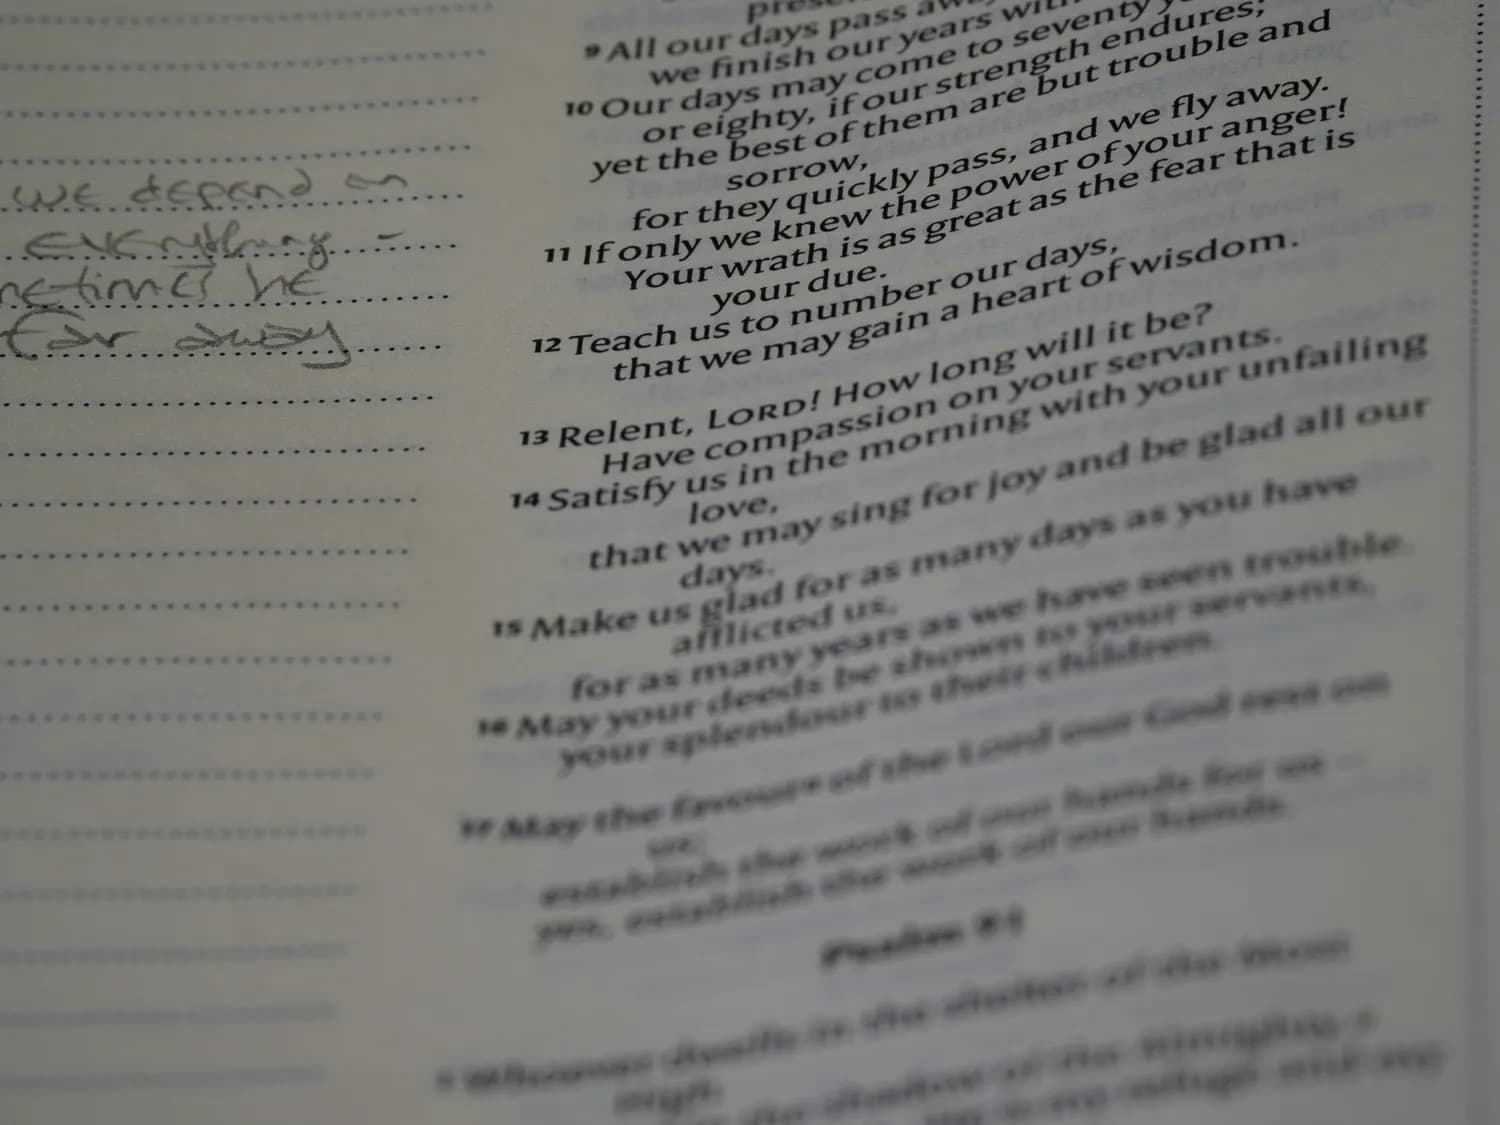 we depend on
everything -
he
far away
9 All our days pass
we finish our years
10 Our days may come to seventy
or eighty, if our strength endures;
yet the best of them are but trouble and
sorrow,
for they quickly pass, and we fly away.
11 If only we knew the power of your anger!
Your wrath is as great as the fear that is
your due.
12 Teach us to number our days,
that we may gain a heart of wisdom.
13 Relent, LORD! How long will it be?
Have compassion on your servants.
14 Satisfy us in the morning with your unfailing
love,
that we may sing for joy and be glad all our
days.
15 Make us glad for as many days as you have
afflicted us,
for as many years as we have seen trouble.
16 May your deeds be shown to your servants,
your splendour to their children.
17 May the favour of the Lord our God rest on
us;
establish the work of our hands for us –
yes, establish the work of our hands.
Psalm 91
1 Whoever dwells in the shelter of the Most
High
the shadow of the Almighty.